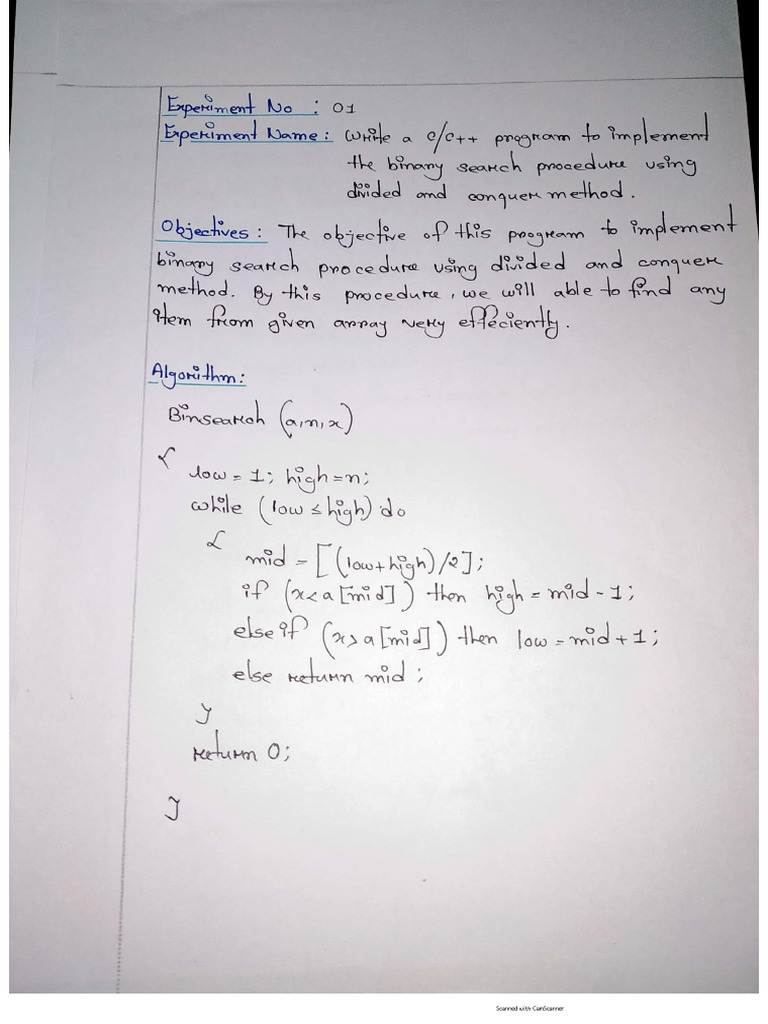 Experiment No : 01
Experiment Name: Write a c/c++ program to implement
the binary search procedure using
divided and conquer method.
Objectives: The objective of this program to implement
binary search procedure using divided and conquer
method. By this procedure, we will able to find any
item from given array very effeciently.
Algorithm:
Binsearch (a,n,x)
{
low = 1; high = n;
while (low ≤ high) do
{
mid = [(low+high)/2];
if (x < a [mid]) then high = mid - 1;
else if (x > a [mid]) then low = mid + 1;
else return mid;
}
return 0;
}
Scanned with CamScanner